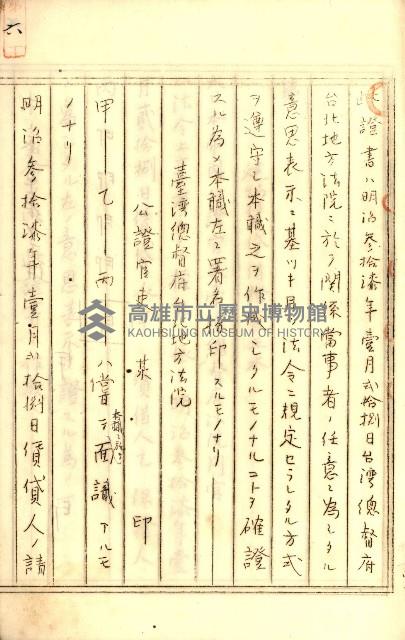 六
此證書ハ明治參拾漆年壹月弐拾捌日台湾總督府
台北地方法院ニ於テ関係當事者ノ任意ニ為シタル
意思表示ニ基ツキ且法令ニ規定セラレタル方式
ヲ遵守シ本職之ヲ作 シタルモノナルコトヲ確證
スル為メ本職左ニ署名捺印スルモノナリ
臺灣總督府台北地方法院
公證官吏 某 印
甲 乙 丙 ハ嘗テ面識アルモ
ノナリ
明治參拾漆年壹月弐拾捌日債貸人ノ請
高雄市立歷史博物館
KAOHSIUNG MUSEUM OF HISTORY